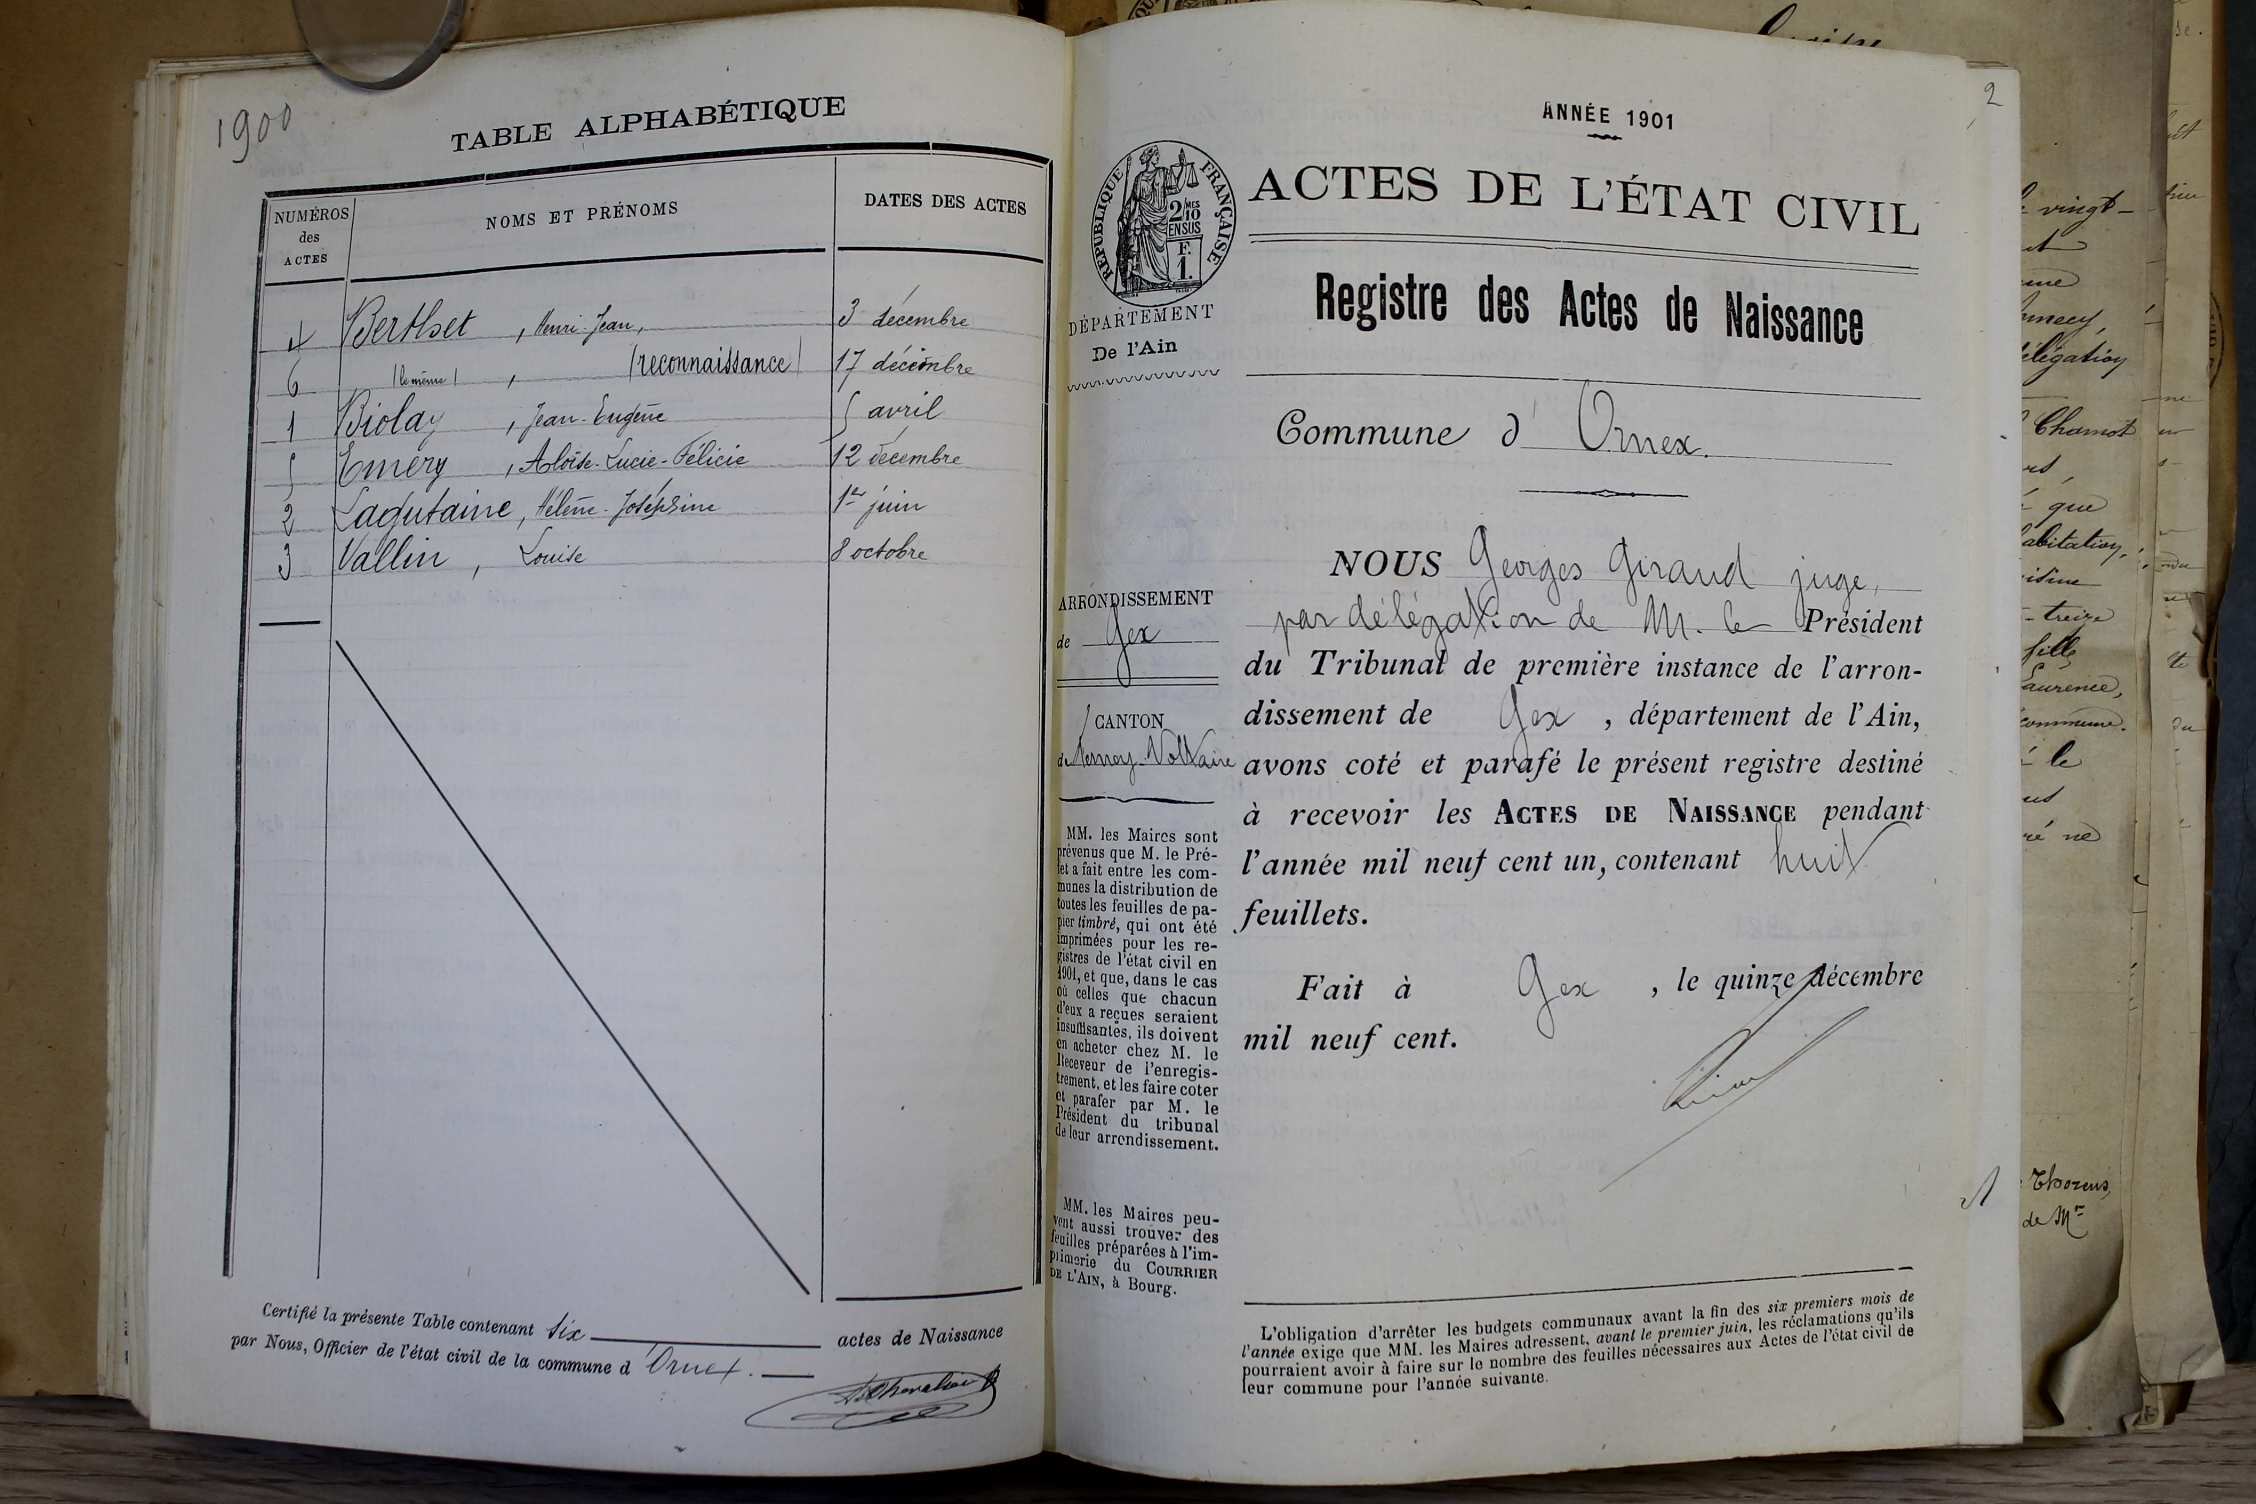 1900
TABLE ALPHABÉTIQUE
NUMÉROS des ACTES
NOMS ET PRÉNOMS
DATES DES ACTES
4 Berthet, Henri-Jean, 3 décembre
6 (le même), (reconnaissance) 17 décembre
1 Biolay, Jean-Eugène 5 avril
5 Emery, Aloïse-Lucie-Félicie 12 décembre
2 Lagutaine, Hélène-Joséphine 1er juin
3 Vallin, Louise 8 octobre
Certifié la présente Table contenant six actes de Naissance
par Nous, Officier de l'état civil de la commune d'Ornex.
2
ANNÉE 1901
RÉPUBLIQUE FRANÇAISE
2/10 MES
EN SUS
F.
1.
ACTES DE L'ÉTAT CIVIL
Registre des Actes de Naissance
DÉPARTEMENT
De l'Ain
Commune d'Ornex.
ARRONDISSEMENT
de Gex
CANTON
de Ferney-Voltaire
MM. les Maires sont
prévenus que M. le Pré-
fet a fait entre les com-
munes la distribution de
toutes les feuilles de pa-
pier timbré, qui ont été
imprimées pour les re-
gistres de l'état civil en
1901, et que, dans le cas
où celles que chacun
d'eux a reçues seraient
insuffisantes, ils doivent
en acheter chez M. le
Receveur de l'enregis-
trement, et les faire coter
et parafer par M. le
Président du tribunal
de leur arrondissement.
MM. les Maires peu-
vent aussi trouver des
feuilles préparées à l'im-
primerie du COURRIER
DE L'AIN, à Bourg.
NOUS Georges Giraud juge,
par délégation de M. le Président
du Tribunal de première instance de l'arron-
dissement de Gex, département de l'Ain,
avons coté et parafé le présent registre destiné
à recevoir les ACTES DE NAISSANCE pendant
l'année mil neuf cent un, contenant huit
feuillets.
Fait à Gex, le quinze décembre
mil neuf cent.
1
L'obligation d'arrêter les budgets communaux avant la fin des six premiers mois de
l'année exige que MM. les Maires adressent, avant le premier juin, les réclamations qu'ils
pourraient avoir à faire sur le nombre des feuilles nécessaires aux Actes de l'état civil de
leur commune pour l'année suivante.
vingt-
élégation
Chamot
que
abitation,
treize
fille
Laurence,
commune.
le
ne
Thorens,
de Mr